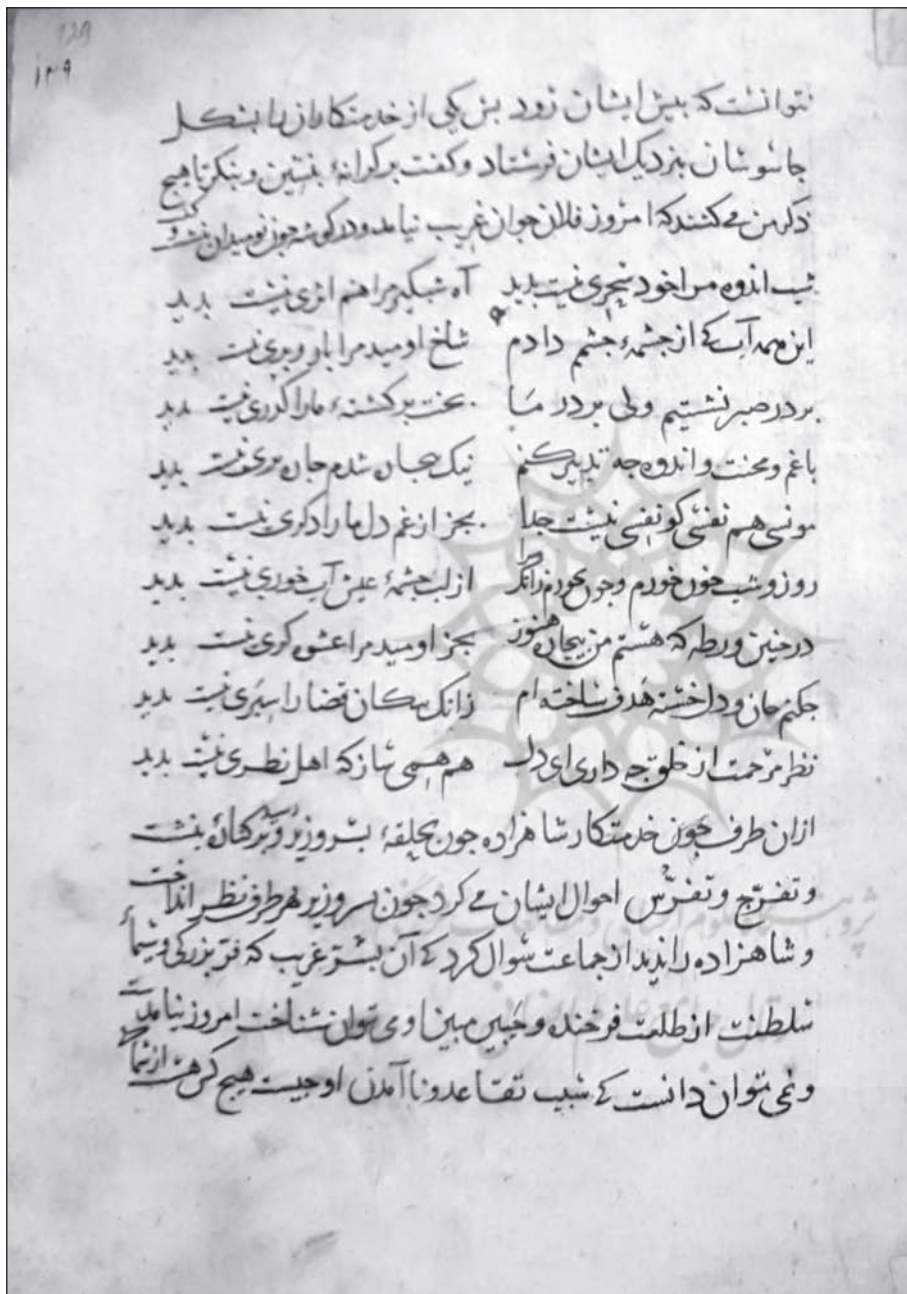 128
۱۲۹
نتوانست که پیش ایشان رود پس یکی از خدمتکاران را بشکل
جاسوسان بنزدیک ایشان فرستاد و کفت برکرانهٔ بنشین و بنکر تا هیچ
ذکر من می کنند که امروز فلان جوان غریب نیامد و در کوشه جون نومیدان
شب اندوه مرا خود سحری نیست بدید آه شبکیر مرا هم اثری نیست بدید
این همه آب که از جشمهٔ جشم دادم شاخ اومید مرا بار و بری نیست بدید
بر در صبر نشستیم ولی بر در ما بخت برکشتهٔ ما را کذری نیست بدید
با غم و محنت و اندوه جه تدبیر کنم نیک بجان شدم جان نیست بدید
مونسی هم نفسی کو نفسی نیست جدا بجز از غم دل ما را دکری نیست بدید
روز و شب خون خورم و جون نخورم زانک مرا از لب جشمهٔ عیش آب خوری نیست بدید
در جنین ورطه که هستم من بیجان هنوز بجز اومید مرا عشوه کری نیست بدید
جکنم جان و دل خسته هدف ساخته ام زانک بیکان قضا را سپری نیست بدید
نظر مرحمت از خلق جه داری ای دل هم همی ساز که اهل نظری نیست بدید
ازان طرف جون خدمتکار شاهزاده جون بحلقهٔ بسر وزیر رسید و بر کنارهٔ بنشست
و تفرّج و تفرّس احوال ایشان می کرد جون بسر وزیر بهر طرف نظر انداخت
و شاهزاده را ندید از جماعت سوال کرد که آن بسر غریب که فرّ بزرکی و سیماء
سلطنت از طلعت فرخنده و جبین مبین او می توان شناخت امروز نیامدست
و نمی توان دانست که سبب تقاعد و ناآمدن او جیست هیچ کس هست از شما